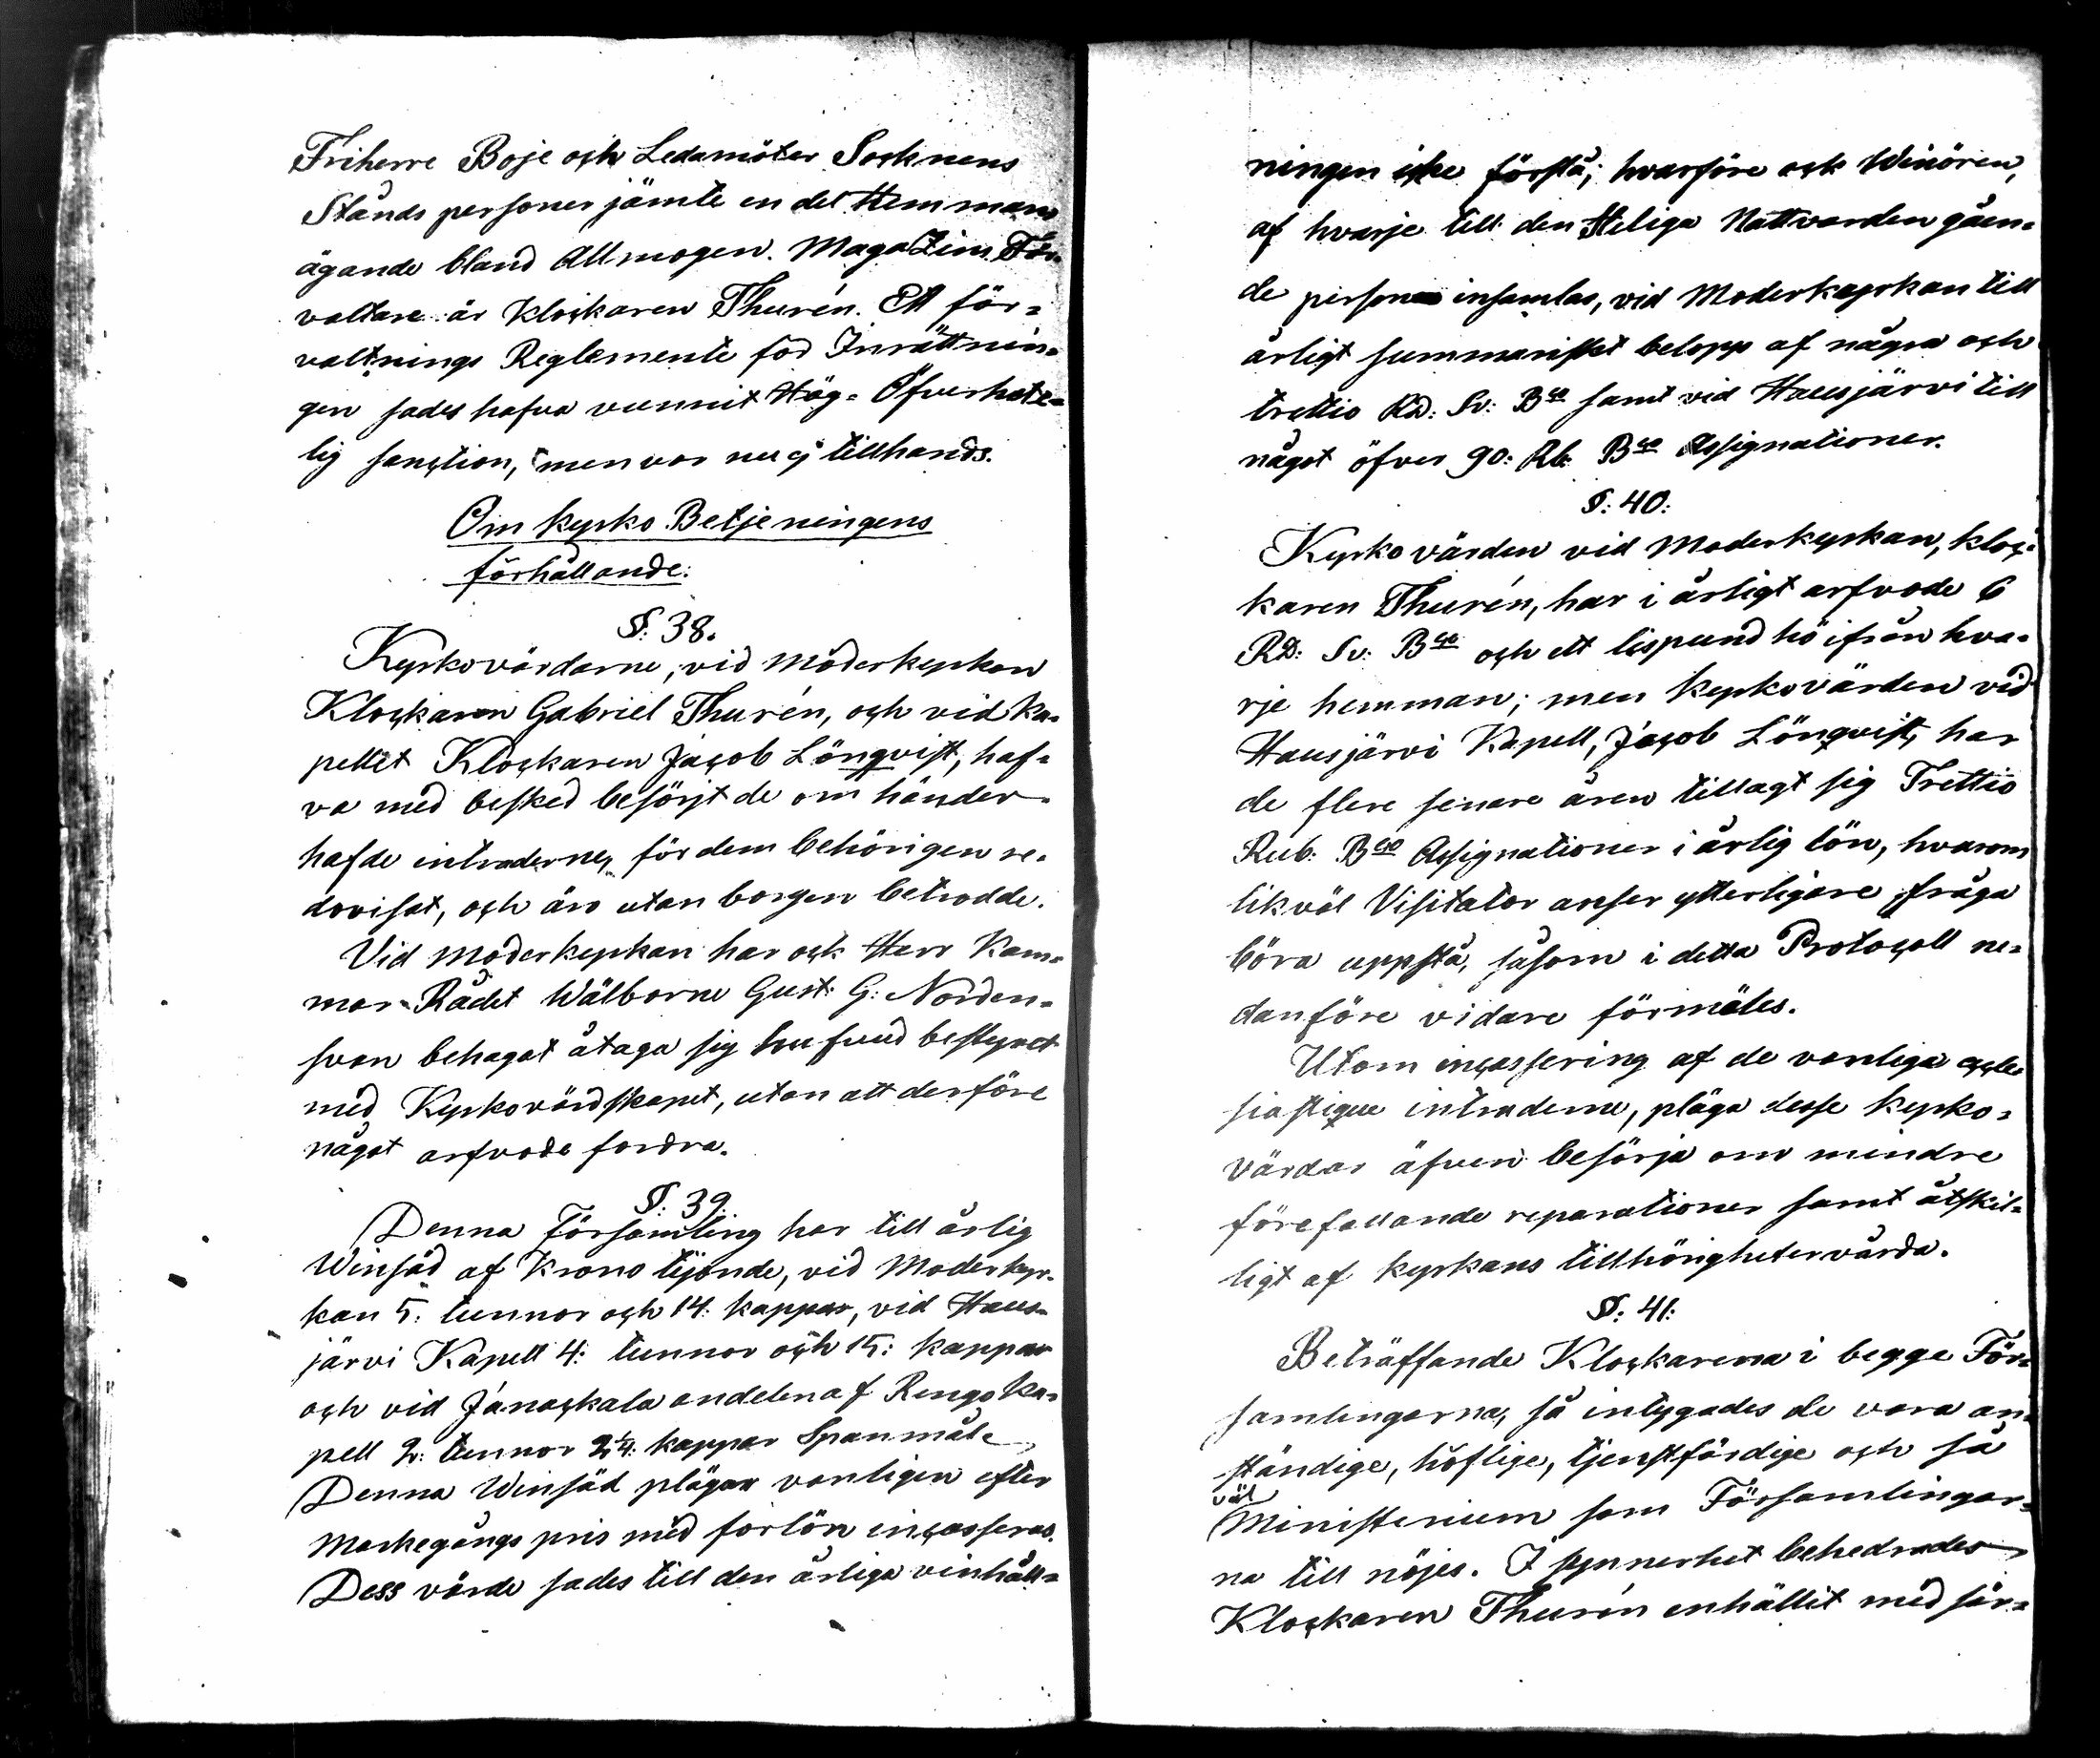 Friherre Boje och Ledamöter Socknens
Stånds personer jämte en del Hemmans
ägande bland Allmogen. MagaZim För-
valtare är klockaren Thurén. Ett för-
valtnings Reglemente föd Inrättnin-
gen sades hafva vunnit Hög- Öfverhete-
lig sanction, men var nu ej tillhands.
Om kyrko Betjeningens
förhållande:
§: 38.
Kyrkovärdarne, vid moderkyrkan
Klockaren Gabriel Thurén, och vid ka-
pellet Klockaren Jacob Lönqvist, haf-
va med besked besörjt de om händer-
hafde intraderne, för dem behörigen re-
dovisat, och äro utan borgen betrodde.
Vid moderkyrkan har ock Herr Kam-
mar-Rådet Wälborne Gust: G: Norden-
svan behagat åtaga sig hufvud bestyret
med Kyrkovärdskapet, utan att derföre
något arfvode fordra.
§: 39:
Denna Församling har till årlig
Winsäd af Krono tijonde, vid Moderkyr-
kan 5: tunnor och 14: kappar, vid Haus-
järvi Kapell 4: tunnor och 15: kappar
och vid Janackala andelen af Rengo ka-
pell 2: tunnor 2¼: kappar Spanmål.
Denna Winsäd plägar vanligen efter
Markegångs pris med forlön incasseras.
Dess värde sades till den årliga vinhåll-
ningen icke förstå; hvarföre ock Winören,
af hvarje till den Heliga Nattvarden gåen-
de person insamlas, vid Moderkyrkan till
årligt summariskt belopp af några och
trettio Rd: Sv: Bco samt vid Hausjärvi till
något öfver 90: Rb: Bco Assignationer.
§: 40:
Kyrkovärden vid Moderkyrkan, kloc-
karen Thurén, har i årligt arfvode 6
RD: Sv: Bco och ett lispund hö ifrån hva-
rje hemman; men kyrkovärden vid
Hausjärvi Kapell, Jacob Lönqvist, har
de flere senare åren tillagt sig Trettio
Rub: Bco Assignationer i årlig lön, hvarom
likväl Visitator anser ytterligare fråga
böra uppstå, såsom i detta Protocoll ne-
danföre vidare förmäles.
Utom incassering af de vanliga eccle
siastique intraderne, pläga desse kyrko-
värdar äfven besörja om mindre
förefallande reparationer samt åtskil-
ligt af kyrkans tillhörigheter vårda.
§: 41:
Beträffande Klockarena i begge För-
samlingarna, så intygades de vara an-
ständige, höflige, tjenstfärdige och så
väl
Ministerium som Församlingar-
na till nöjes. I synnerhet behedrades
Klockaren Thurén enhällit med sär-